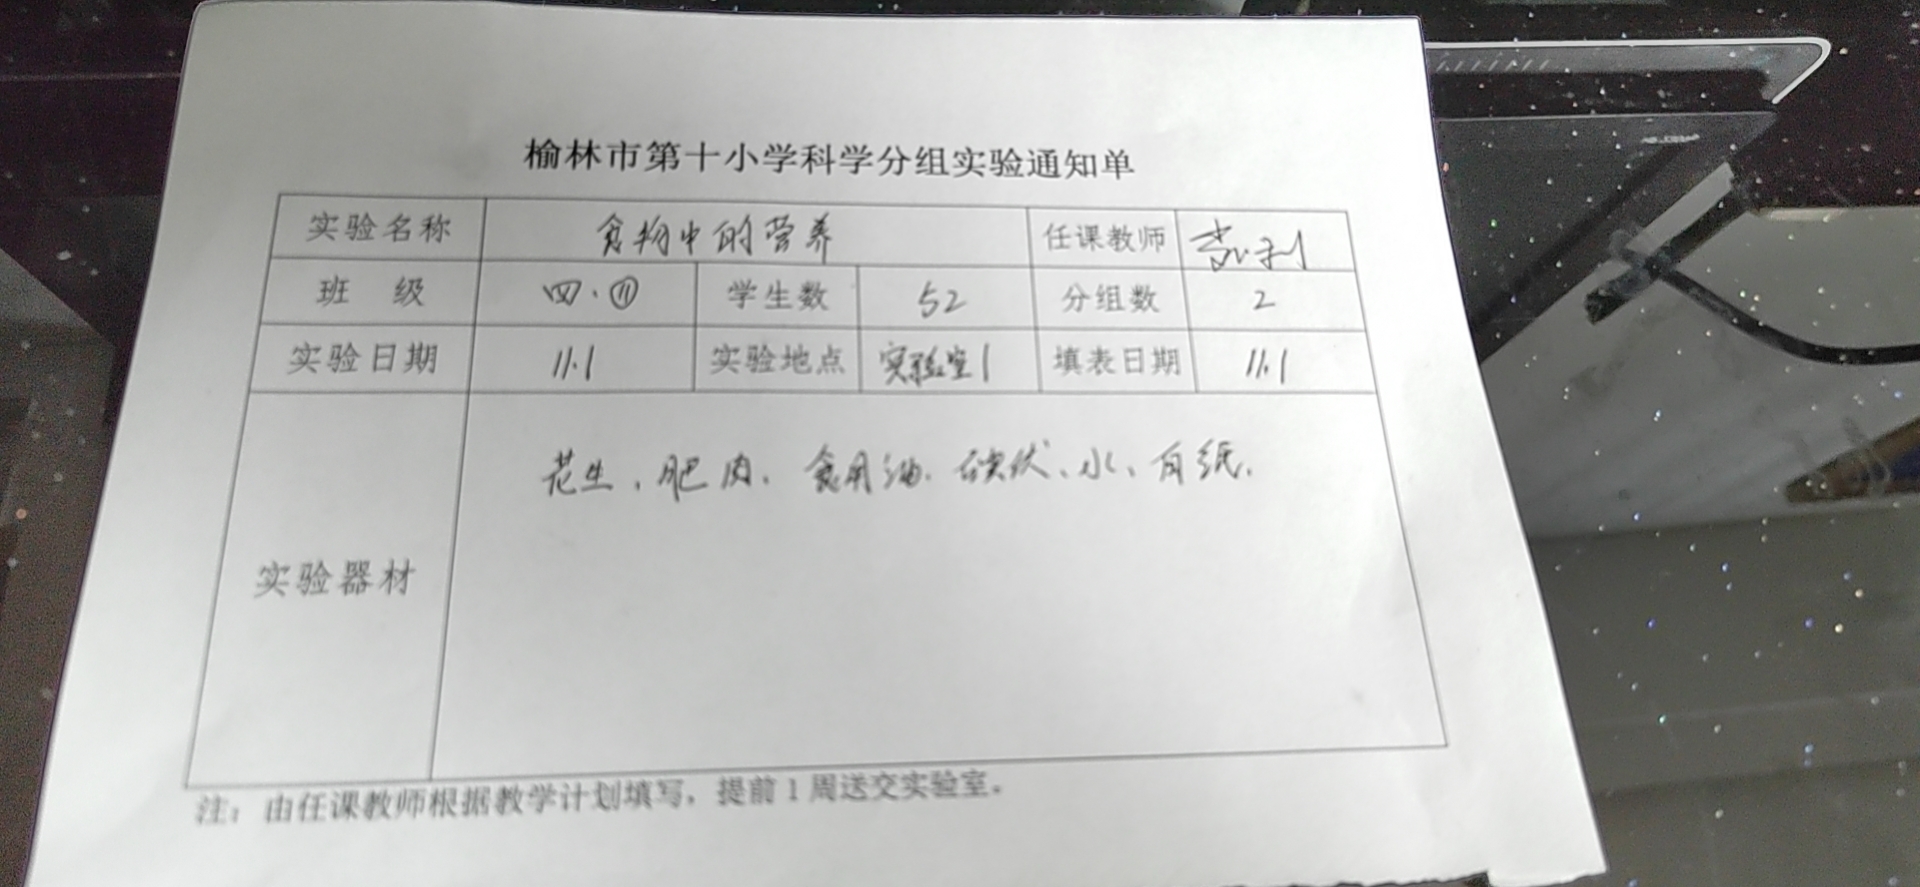 榆林市第十小学科学分组实验通知单
实验名称 食物中的营养 任课教师
班 级 四·⑪ 学生数 52 分组数 2
实验日期 11.1 实验地点 实验室1 填表日期 11.1
实验器材 花生、肥肉、食用油、碘伏、水、白纸.
注：由任课教师根据教学计划填写，提前1周送交实验室。